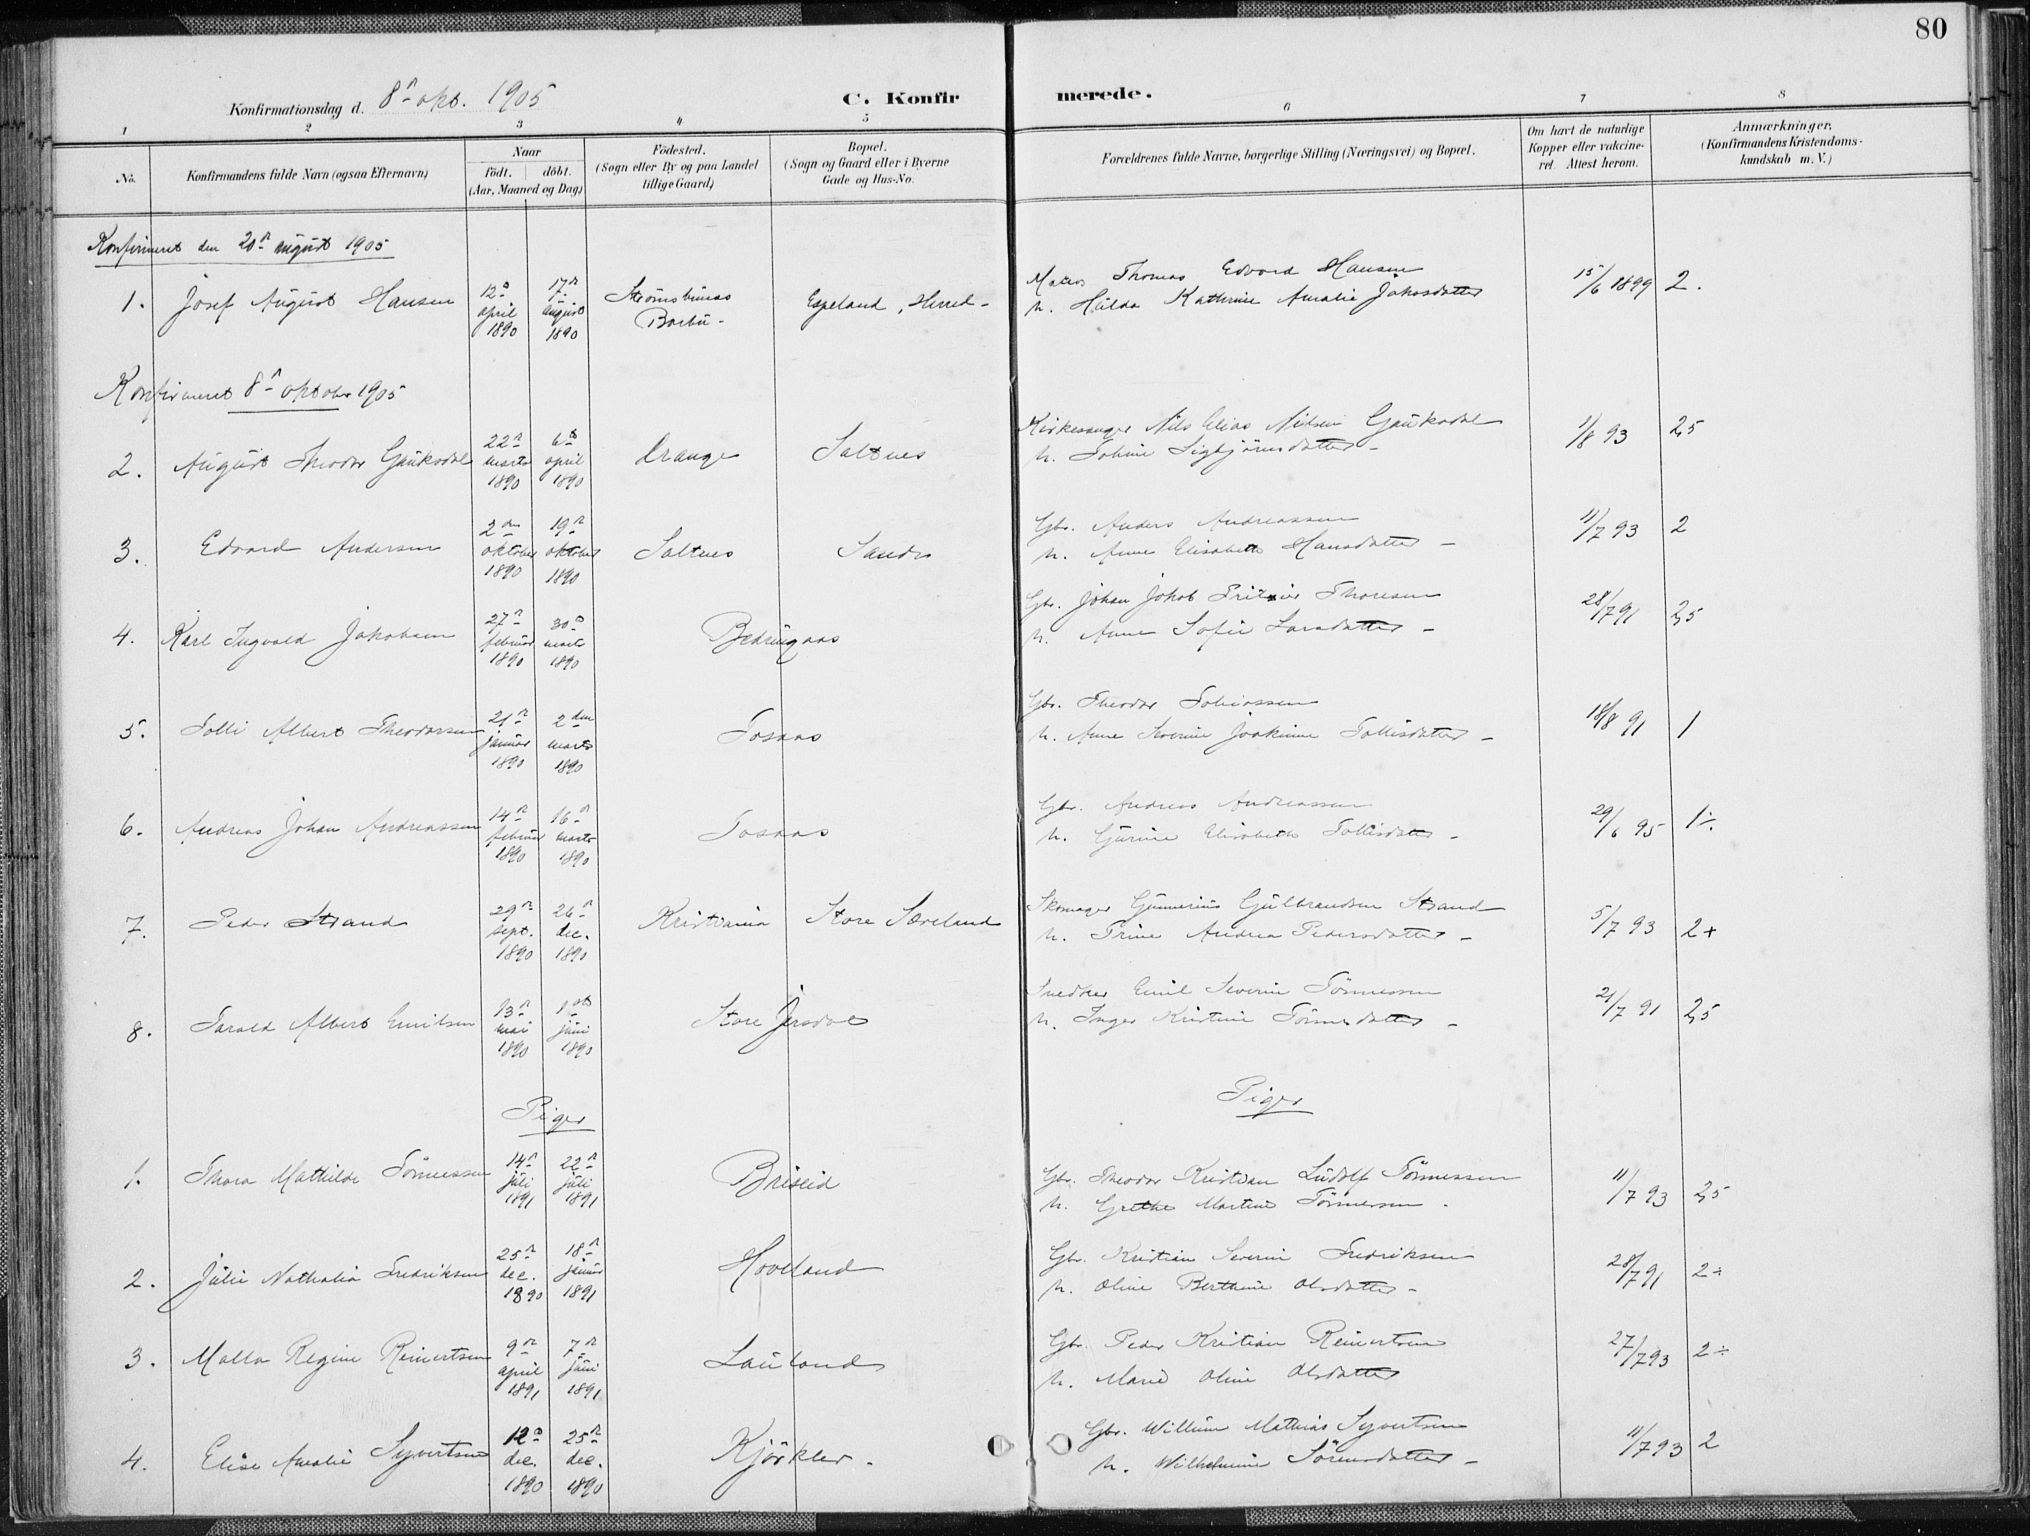 80
Konfirmationsdag d. 8n okt. 1905
C. Konfirmerede.
1 2 3 4 5 6 7 8
No.
Konfirmandens fulde Navn (ogsaa Efternavn)
Naar
födt. döbt.
(Aar, Maaned og Dag)
Födested.
(Sogn eller By og paa Landet
tillige Gaard)
Bopæl.
(Sogn og Gaard eller i Byerne
Gade og Hus-No.
Forældrenes fulde Navne, borgerlige Stilling (Næringsvei) og Bopæl.
Om havt de naturlige
Kopper eller vakcine-
ret. Attest herom.
Anmærkninger.
(Konfirmandens Kristendoms-
kundskab m. V.)
Konfirmeret den 20n august 1905
1. Josef August Hansen
12n april 1890
17n august 1890
Strømsbunes
Barbu -
Espeland, Herred -
Thomas Edvard Hansen
h. Hilda Kathrine Amalie Jakobsdatter
15/6 1899 2.
Konfirmeret 8n oktober 1905
2. August Theodor Gaukodal
22n marts 1890
6te april 1890
Orange
Saltnes
Kirkesanger Nils Elias Nilsen Gaukodal
h. Tobine Sigbjörnsdatter -
1/8 93 2,5
3. Edvard Andersen
2den oktober 1890
19n oktober 1890
Saltnes
Sandø
Gbr. Anders Andreassen
h. Anne Elisabeth Hansdatter -
11/7 93 2
4. Karl Ingvald Jakobsen
27n februar 1890
30n marts 1890
Bedringaas
Gbr. Johan Jakob Thorsen
h. Anne Sofie Larsdatter -
28/7 91 2,5
5. Tolli Albert Theodorsen
21n januar 1890
2den marts 1890
Tosaas
Gbr. Theodor Tobiassen
h. Anne Severine Joakime Tollisdatter -
18/8 91 1
6. Andreas Johan Andreassen
14n februar 1890
16n marts 1890
Tosaas
Gbr. Andreas Andreassen
h. Gurine Elisabeth Tollisdatter -
29/6 95 1÷.
7. Peder Strand
29n sept. 1890
26n dec. 1890
Kristiania
Store Sæveland
Skomager Gunnerius Gulbrandsen Strand
h. Trine Andrea Pedersdatter -
5/7 93 2+
8. Tarald Albert Emilsen
13n mai 1890
1ste juni 1890
Store Jersdal
Snedker Emil Severin Tönnessen
h. Inger Kristine Tönnesdatter -
21/7 91 2,5
Piger Piger
1. Thora Mathilde Tönnessen
14n juli 1891
22n juli 1891
Briseid
Gbr. Theodor Kristian Ludolf Tönnessen
h. Grethe Martine Tönnessen .
11/7 93 2,5
2. Julie Nathalia Fredriksen
25n dec. 1890
18n januar 1891
Hoveland
Gbr. Kristian Severin Fredriksen
h. Oline Berthine Olsdatter -
28/7 91 2÷
3. Malla Regine Reinertsen
9n april 1891
7n juni 1891
Lauland
Gbr. Peder Kristian Reinertsen
h. Marie Oline Olsdatter
27/7 93 2÷
4. Elise Amalie Syvertsen
12n dec. 1890
25n dec. 1890
Kjörkler -
Gbr. Willum Mathias Syvertsen
h. Wilhelmine Sörensdatter -
11/7 93 2